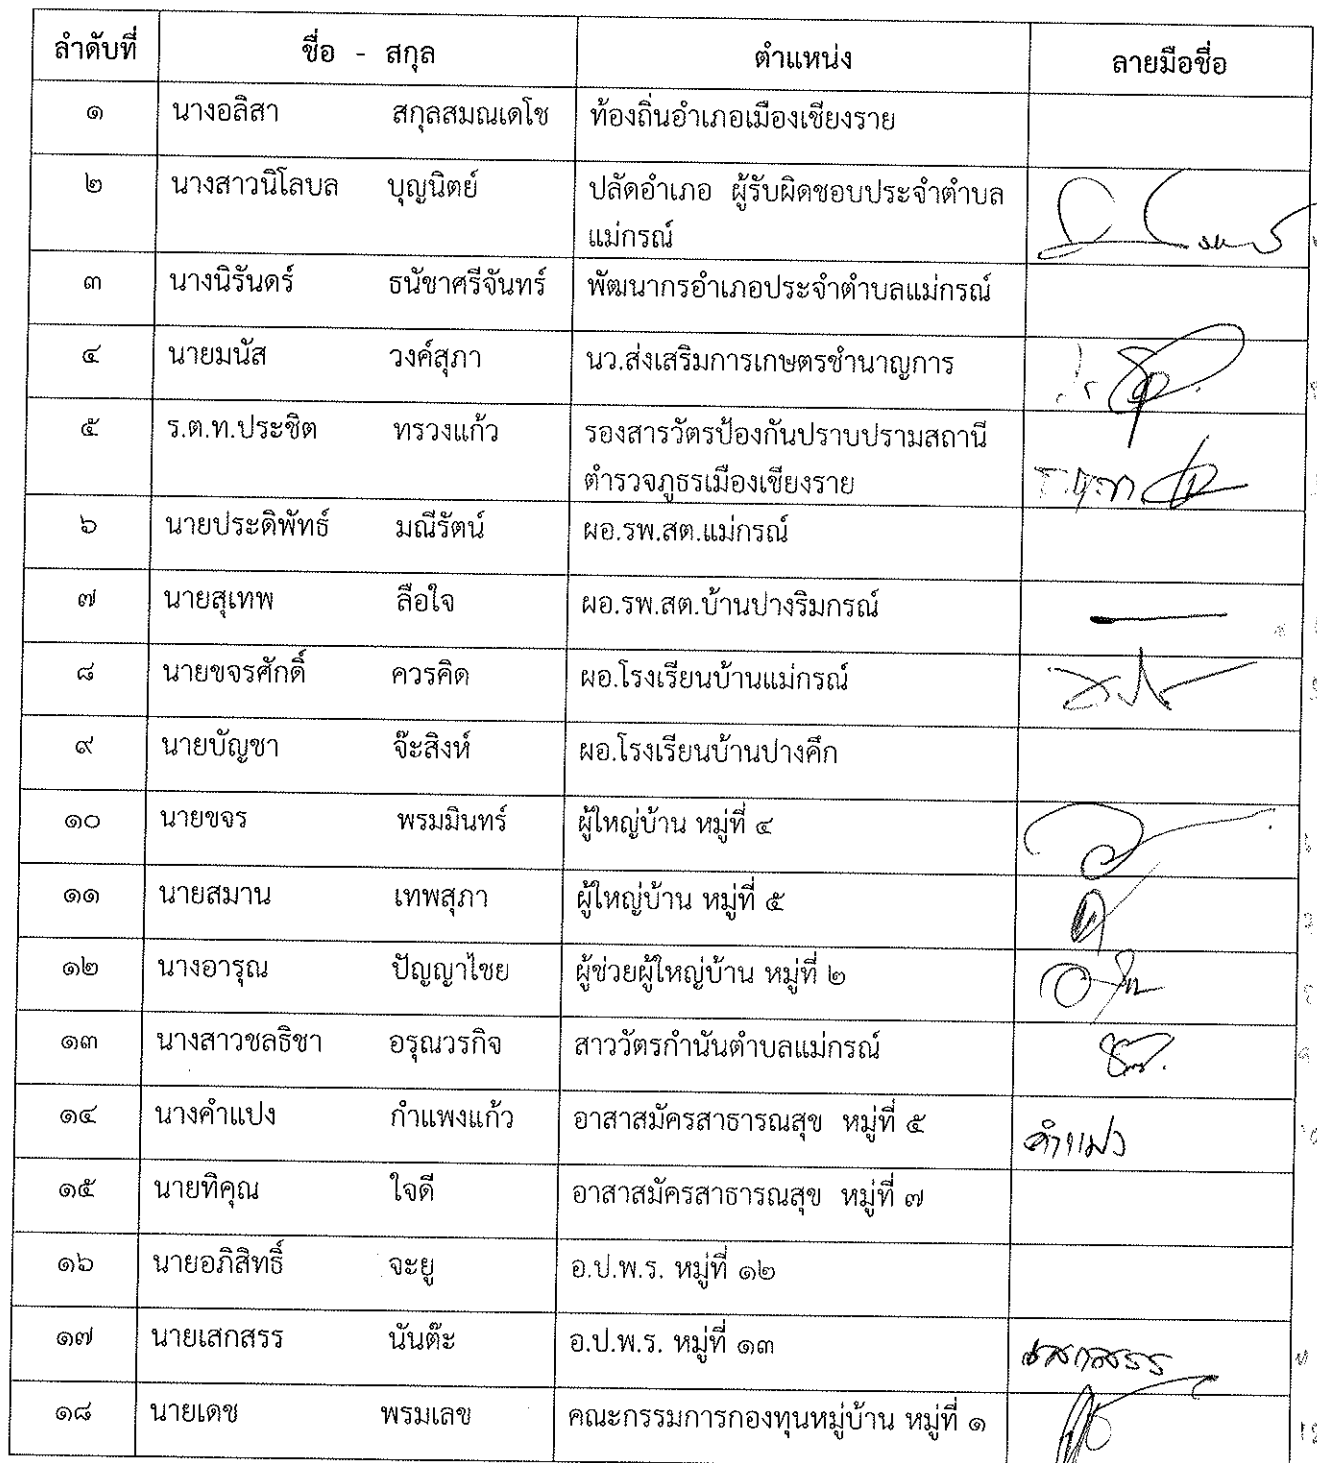 ลำดับที่ ชื่อ - สกุล ตำแหน่ง ลายมือชื่อ
๑ นางอลิสา สกุลสมณเดโช ท้องถิ่นอำเภอเมืองเชียงราย
๒ นางสาวนิโลบล บุญนิตย์ ปลัดอำเภอ ผู้รับผิดชอบประจำตำบล
แม่กรณ์
๓ นางนิรันดร์ ธนัชาศรีจันทร์ พัฒนากรอำเภอประจำตำบลแม่กรณ์
๔ นายมนัส วงค์สุภา นว.ส่งเสริมการเกษตรชำนาญการ
๕ ร.ต.ท.ประชิต ทรวงแก้ว รองสารวัตรป้องกันปราบปรามสถานี
ตำรวจภูธรเมืองเชียงราย
๖ นายประดิพัทธ์ มณีรัตน์ ผอ.รพ.สต.แม่กรณ์
๗ นายสุเทพ ลือใจ ผอ.รพ.สต.บ้านปางริมกรณ์
๘ นายขจรศักดิ์ ควรคิด ผอ.โรงเรียนบ้านแม่กรณ์
๙ นายบัญชา จ๊ะสิงห์ ผอ.โรงเรียนบ้านปางคึก
๑๐ นายขจร พรมมินทร์ ผู้ใหญ่บ้าน หมู่ที่ ๔
๑๑ นายสมาน เทพสุภา ผู้ใหญ่บ้าน หมู่ที่ ๕
๑๒ นางอารุณ ปัญญาไชย ผู้ช่วยผู้ใหญ่บ้าน หมู่ที่ ๒
๑๓ นางสาวชลธิชา อรุณวรกิจ สาววัตรกำนันตำบลแม่กรณ์
๑๔ นางคำแปง กำแพงแก้ว อาสาสมัครสาธารณสุข หมู่ที่ ๕ คำแปง
๑๕ นายทิคุณ ใจดี อาสาสมัครสาธารณสุข หมู่ที่ ๗
๑๖ นายอภิสิทธิ์ จะยู อ.ป.พ.ร. หมู่ที่ ๑๒
๑๗ นายเสกสรร นันต๊ะ อ.ป.พ.ร. หมู่ที่ ๑๓ เสกสรร
๑๘ นายเดช พรมเลข คณะกรรมการกองทุนหมู่บ้าน หมู่ที่ ๑